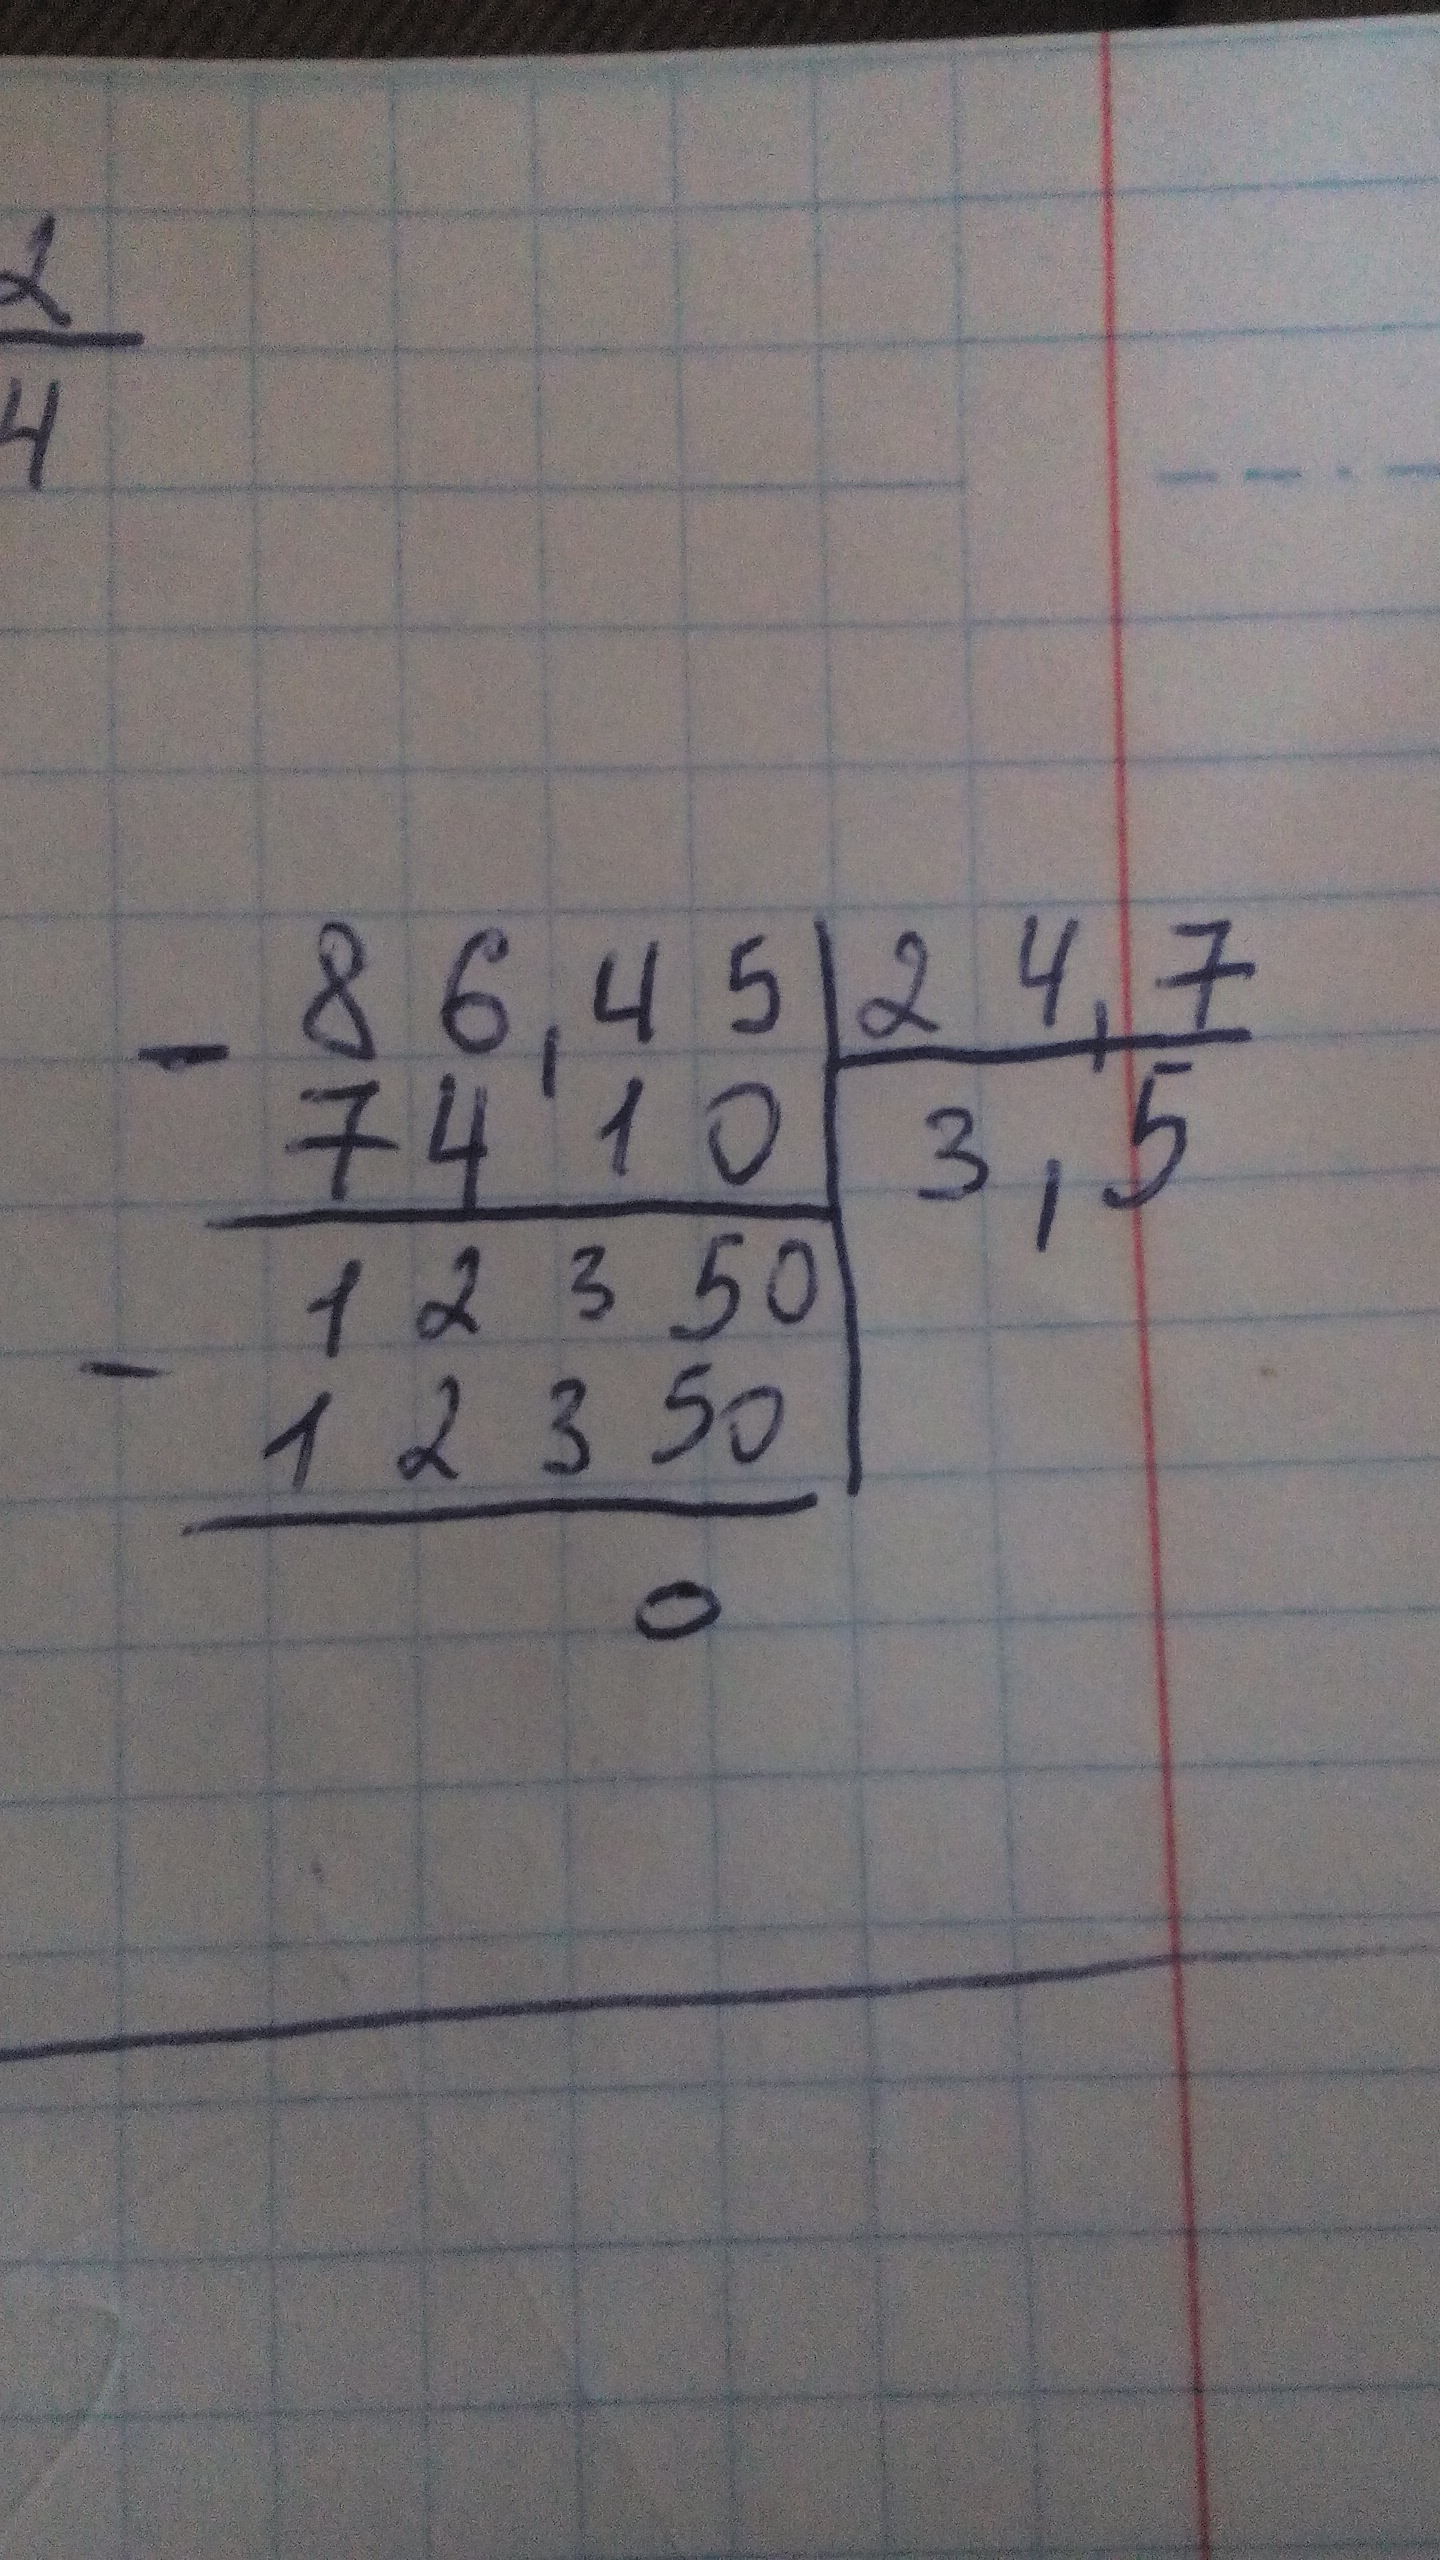 2
4
- 86,45 | 24,7
7410 3,5
12350
- 12350
0